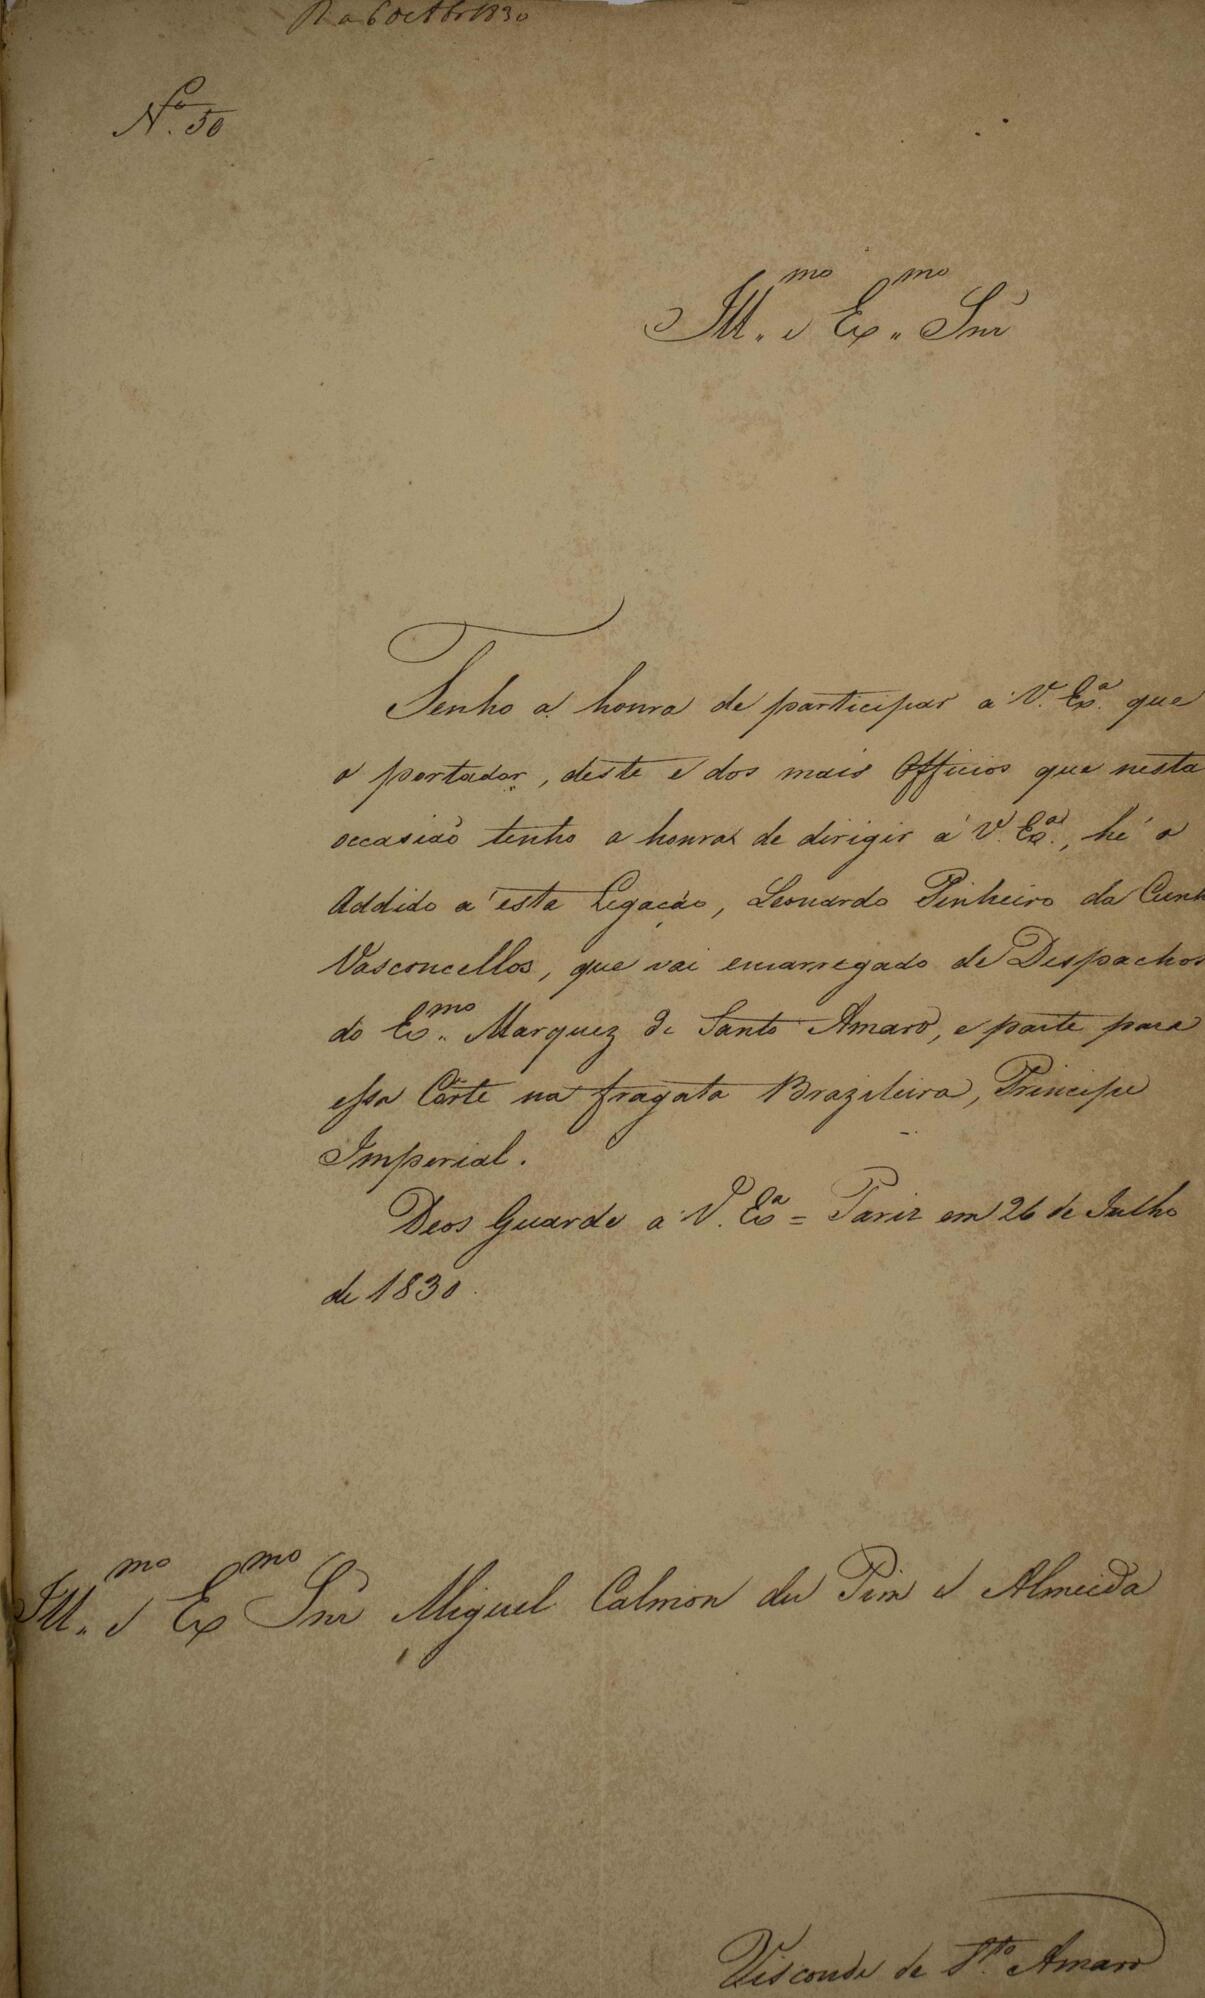 R a 6 de Abr 1830
Nº. 50
Ill.mo e Ex.mo Snr
Tenho a honra de participar a V. Exa. que
o portador, deste e dos mais Officios que nesta
occasião tenho a honra de dirigir á V. Exa., hé o
Addido a esta Legação, Leonardo Pinheiro da Cunh
Vasconcellos, que vai encarregado de Despachos
do Exmo. Marquez de Santo Amaro, e parte para
essa Côrte na fragata Brazileira, Principe
Imperial.
Deos Guarde a V. Exa = Pariz em 26 de Julho
de 1830.
Ill.mo e Exmo Snr Miguel Calmon du Pin e Almeida
Visconde de Sto. Amaro